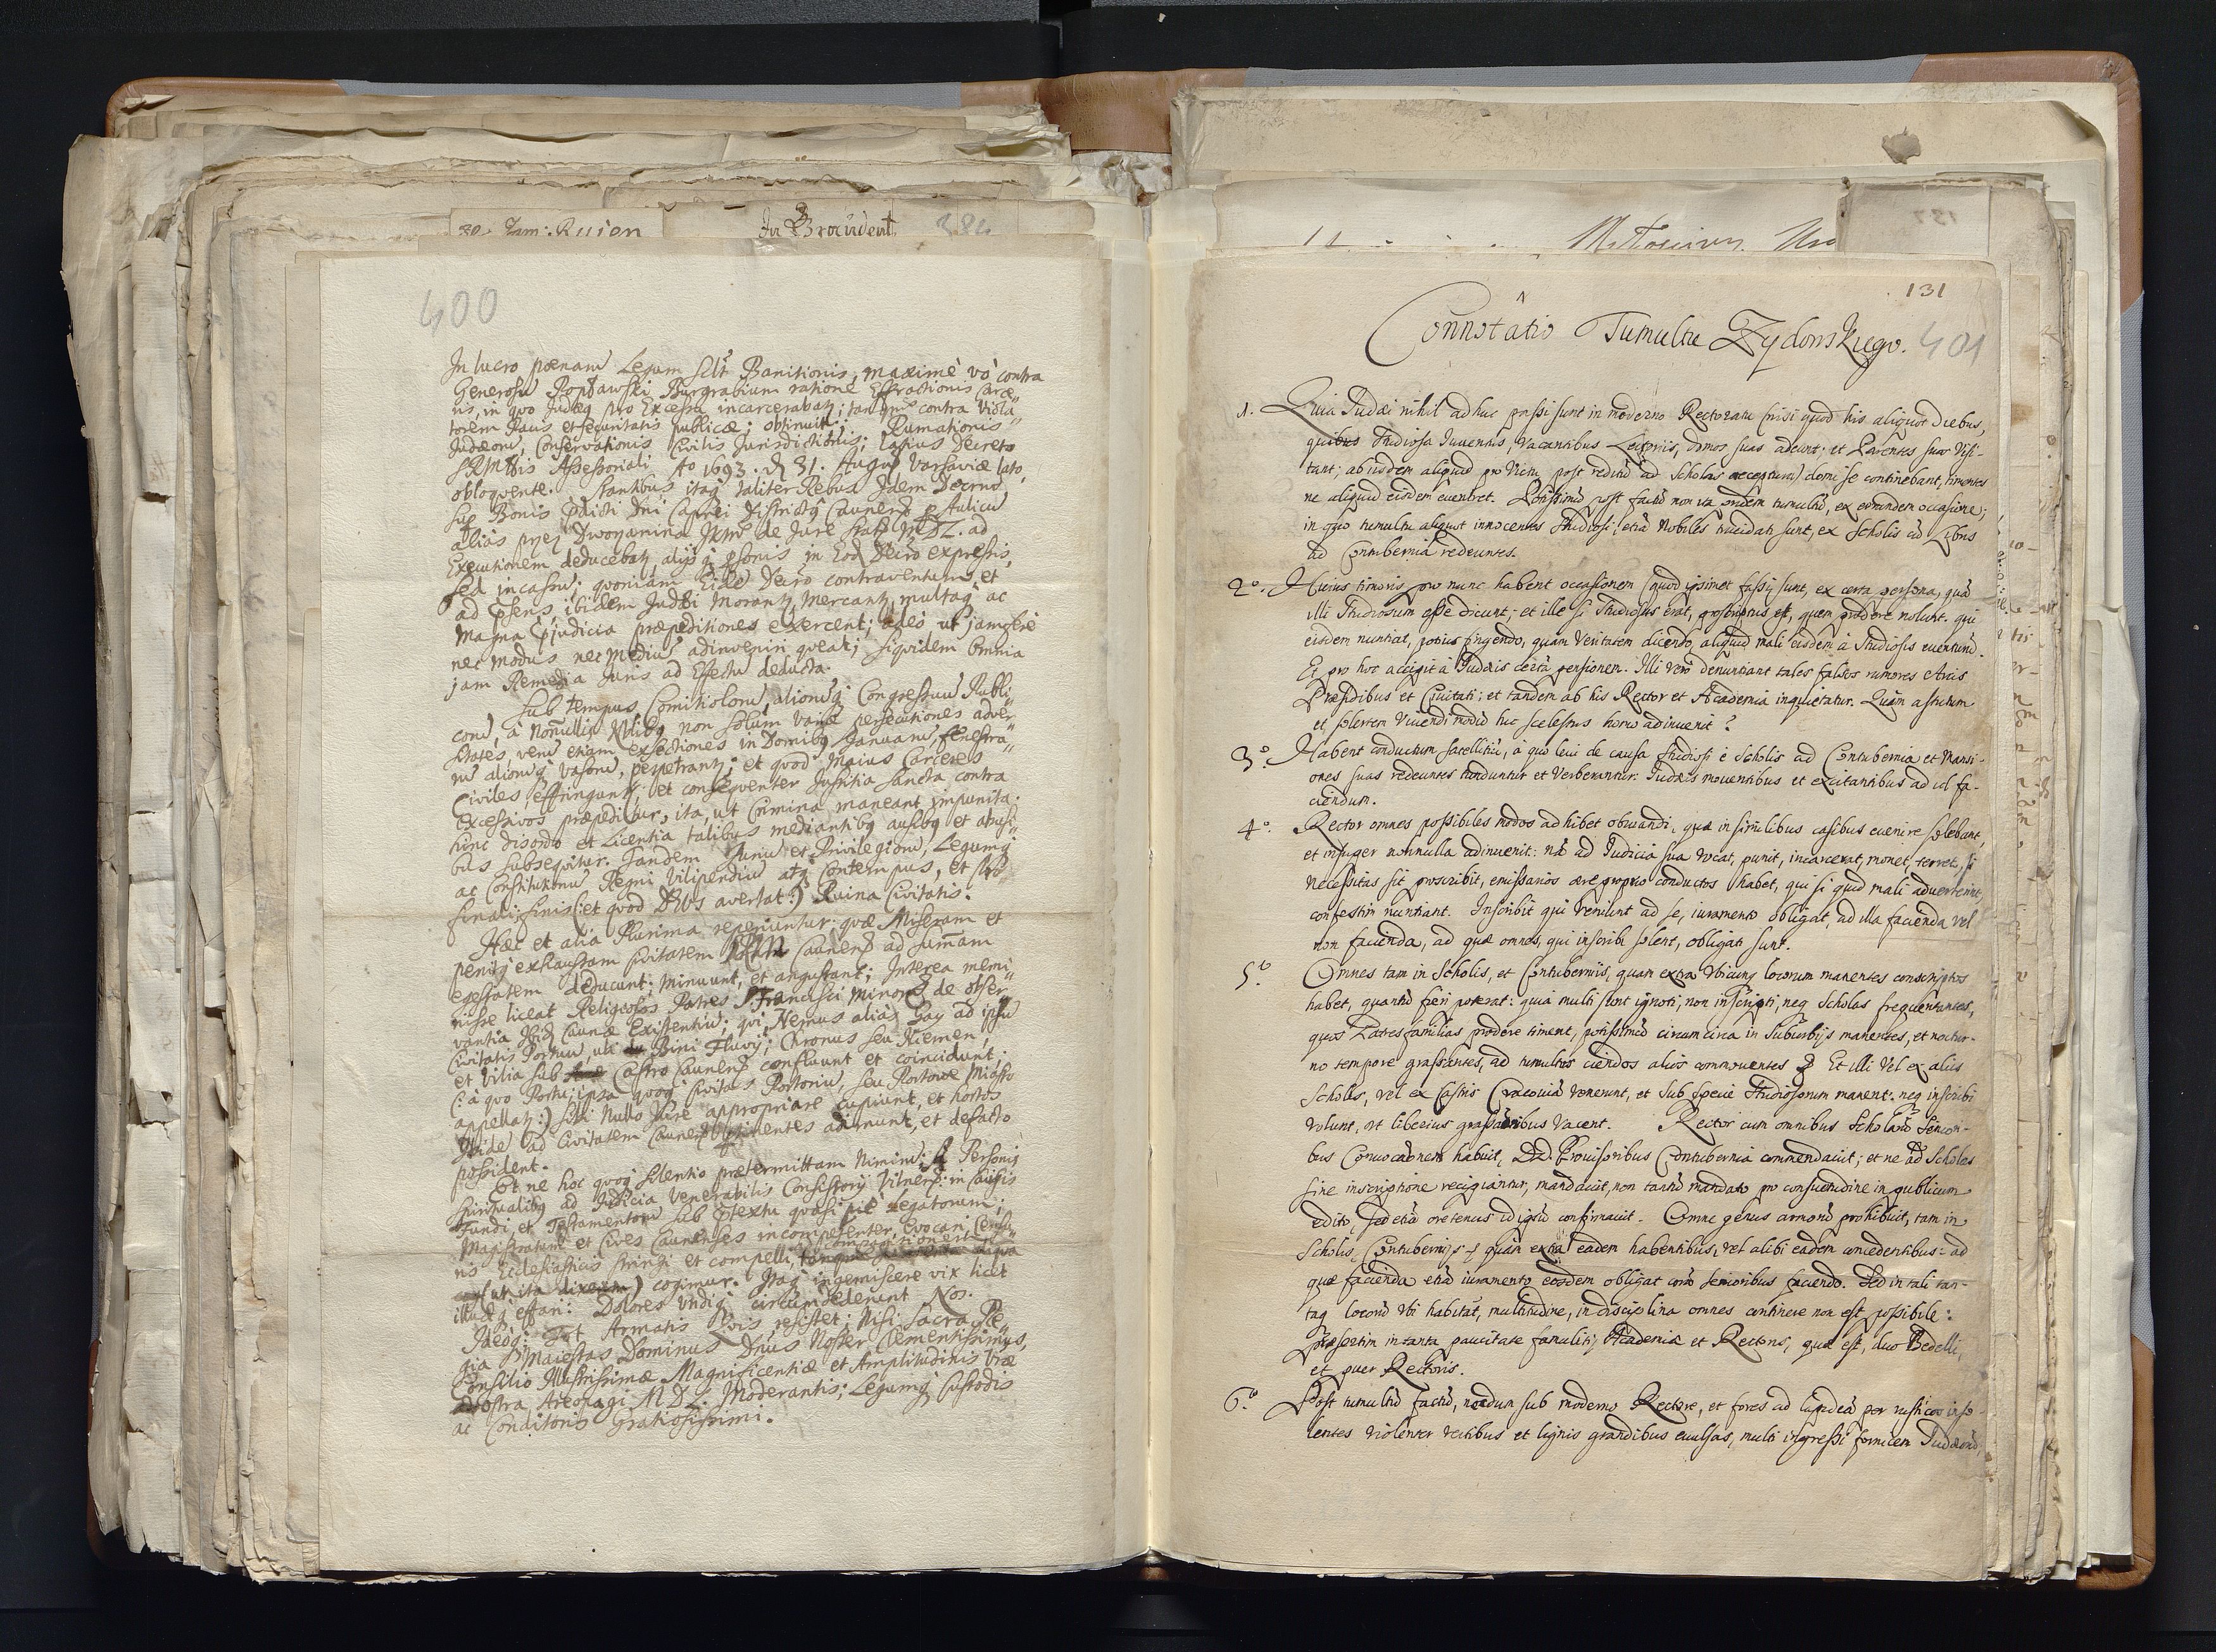 30 Jam: Ruien
In Braudent. 384
400
In lucro pænam Legum sclt Banitionis, maximè vò contra
Generosu Poptawski Burgrabium ratione Effractionis Carce
ris, in quo Judæq pro Excessu incarcerabatz; tanqm contra viola
torem Pacis et securitatis publicæ; obtinuit. Rumationis
Judæoru, Conservationis Civilis Jurisdictionis; Latius Decreto
SRMttis Assessoriali Ao 1693. d 31. Augus Varsaviæ lato,
obloquente. Stantibus itaq taliter Rebus Idem Decrnd
sup Bonis pdicti Dni Capnei Districtq Caunens p Aulicu
alias przez Dworzanina JKMci de Jure Statt WXDL. ad
Executionem deducebatz, alijs q psonis in Eod Dcro expressis,
sed incassu; quoniam Eidē Dcro contraventum, et
ad psens, ibidem Judæi Morantz, Mercantz, multaq ac
Magna pjudicia præpeditiones exercent; adeò ut jam ferè
nec modus nec medius adinveniri queat; siquidem Omnia
jam Remedia Juris ad Effectu deducta.
Sub tempus Comitioloru, alionuq Congressuu Publi
coru, à Nonnullis Nblibq non solum variæ persecutiones adver
sitates, veru etiam exsectiones in Domibq Januaru, fenestra
ru alioruq vasoru, perpetrantz; et quod Maius Carceres
Civiles, effringuntz, et consequenter Justitia Sancta contra
Excessivos præpeditur, ita, ut Crimina maneant impunita.
hinc disordo et Licentia talibus mediantibq ausibq et abusi
bus subsequitur. Tandem Juriu et Privilegioru, Legumq
ac Constitutionu Regni Vilipendiu atq Contemptus, et pro
finali; finis (: et quod DEUS avertat :) Ruina Civitatis.
Hæc et alia Plurima reperiuntur: quæ Miseram et
penitq exhaustam Civitatem SRM Caunens ad sumam
egestatem deducunt; minuunt, et angustant; Interea memi
nisse liceat Religiosos Patres S. Francisci Minoru de obser
vantia Ibid Caunæ Existentiu; qui, Nemus alias Gay ad ipsu
Civitatis Portuu, ubi Bini Fluvij; Chronus seu Niemen,
et Vilia sub Castro Caunens confluunt et coincidunt.
(: à quo Portu; ipsa quoq Civitas Portoriu, seu Portowe Miasto
appellatz :) sibi Nullo Jure appropriare cupiunt, et hortos
Ibide ad Civitatem Caunens ptinentes adimunt, et defacto
possident.
Et ne hoc quoq silentio prætermittam Nimiru; A Personis
Spiritualibq ad Judicia Venerabilis Consistorij Vilnens: in Causis
Fundi, et Testamentoru sub Ptextu quasi piè Legatorum;
Magistratum et Cives Caunenses incompetenter, Evocari, Censu
ris Ecclesiasticis stringi et compelli,
(ut ita dixerim) cogimur. Itaq ingemiscere vix licet
illudq effari: Dolores undiq circumdederunt Nos.
Ideoq: Tot Armatis Quis resistet; Nisi Sacra Re
gia Maiestas Dominus Dnus Noster Clementissimus,
Consilio Illustrissimæ Magnificentiæ et Amplitudinis Vræ
Nostra, Areopagi M D L. Moderantis; Legumq Custodis
ac Conditoris Gratiosissimi.
131
401
Connotatio Tumultu Zydowskiego.
1. Quia Judæi nihil ad huc passi sunt in moderno Rectoratu (nisi quod his aliquot diebus,
quibus studiosa Juventus, vacantibus Lectorijs, domos suas adeunt; et Parentes suos visi-
tant; ab iisdem aliquid pro Victu post reditũ ad Scholas acceptura) domi se continebant, timentes
ne aliquid eisdem eveniret. Potissimũ post factũ non ita pridem tumultũ, ex eorundem occasione;
in quo tumultu aliquot innocentes studiosi, etiã nobiles trucidati sunt, ex Scholis cũ Libris
ad Contubernia redeuntes.
2o. Huius timoris pro nunc habent occasionem (quod ipsimet fassi sunt, ex certa persona, quã
illi Studiosum esse dicunt; et ille si studiosus erat, proscriptus est, quem prodere nolunt. qui
eisdem nuntiat, potius fingendo, quam Veritatem dicendo, aliquid mali eisdem à Studiosis euenturũ.
Et pro hoc accipit à Judæis certã pensionem. Illi verò denuntiant tales falsos rumores Arcis
Præsidibus et Civitati; et tandem ab his Rector et Academia inquietatur. Quàm astutum
et solertem vivendi modũ hic scelestus homo adinuenit?
3o. Habent conductum satellitiũ, à quo levi de causa studiosi è Scholis ad Contubernia et Mansi-
ones suas redeuntes tunduntur et verberantur. Judæis moventibus et excitantibus ad id fa-
ciendum.
4o. Rector omnes possibiles modos adhibet obviandi, quæ in similibus casibus evenire solebant,
et insuper nonnulla adinuenit: nã ad Judicia sua vocat, punit, incarcerat, monet, terret, si
necessitas sit proscribit, emissarios ære proprio conductos habet, qui si quid mali adverterint,
confestim nuntiant. Inscribit qui veniunt ad se, iuramento obligat, ad illa facienda vel
non facienda, ad quæ omnes, qui inscribi solent, obligati sunt.
5to Omnes tam in Scholis, et Contubernijs, quam extra ubicunq locorum manentes conscriptos
habet, quantũ fieri poterat: quia multi sunt ignoti, non inscripti, neq Scholas frequentantes,
quos Patresfamilias prodere timent, potissimũ circumcirca in suburbijs manentes, et noctur-
no tempore grassantes, ad tumultus ciendos alios commoventes. Et illi vel ex alijs
Scholis, vel ex Castris Cracoviã venerunt, et sub specie Studiosorum manent: neq inscribi
volunt, ut liberius grassationibus vacent. Rector cum omnibus Scholarũ Seniori-
bus Convocãonem habuit, DD. Provisoribus Contubernia commendavit; et ne ad Scholas
sine inscriptione recipiantur, mandavit, non tantũ mandato pro consuetudine in publicum
edito, sed etiã oretenus id ipsũ confirmavit. Omne genus armorũ prohibuit, tam in
Scholis, Contubernijs, quàm extra eadem habentibus, vel alibi eadem concedentibus: ad
quæ facienda etiã iuramento eosdem obligat corã senioribus faciendo. Sed in tali tan-
taq locorũ ubi habitãt, multitudine, in disciplina omnes continere non est possibile:
præsertim in tanta paucitate famulitij Academiæ et Rectoris, quæ est, duo Bedelli,
et puer Rectoris.
6to Post tumultũ factũ, nondum sub moderno Rectore, et fores ad lapideã per rusticos inso-
lentes violenter vectibus et lignis grandibus evulsas, multi ingressi fornicem Judæorũ,